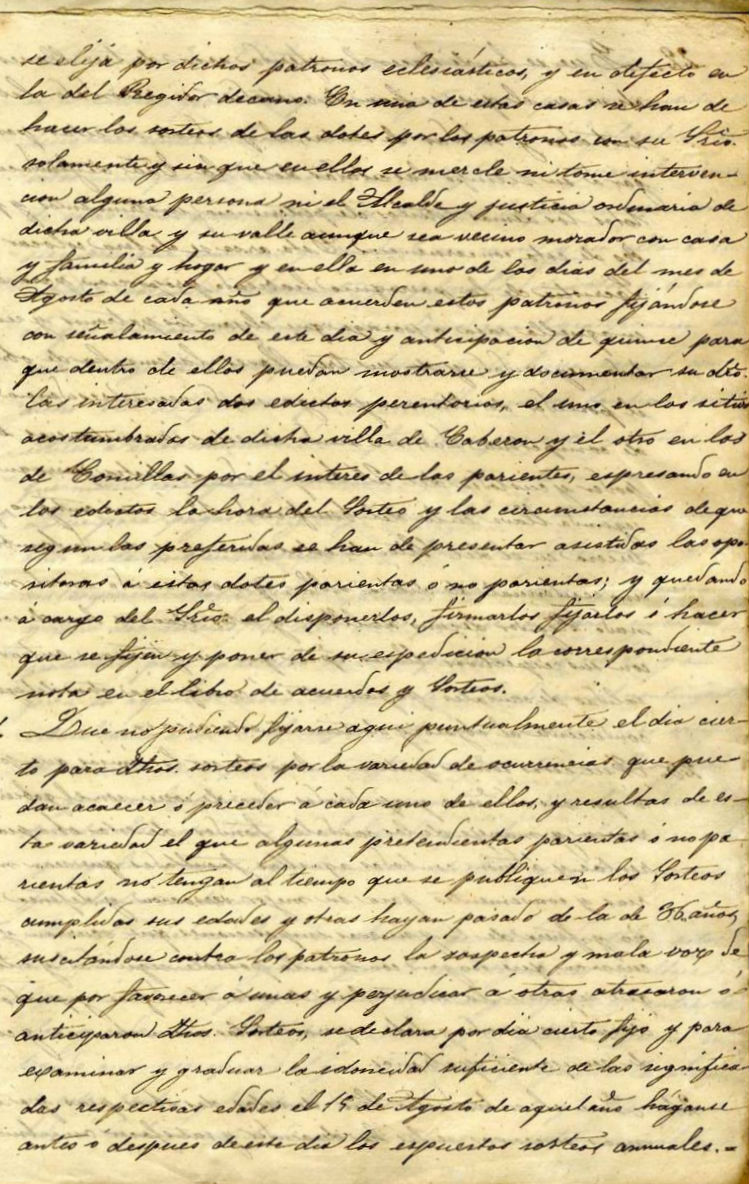 se elija por dichos patronos eclesiásticos, y en defecto en
la del Regidor decano. En una de estas casas se han de
hacer los sorteos de las dotes por los patronos con su Srio.
solamente y sin que en ellos se mercle ni tome interven-
cion alguna persona ni el Alcalde y justicia ordinaria de
dicha villa y su valle aunque sea vecino morador con casa
y familia y hogar y en ella en uno de los dias del mes de
Agosto de cada año que acuerden estos patronos fijándose
con señalamiento de este dia y anticipacion de quince para
que dentro de ellos puedan mostrarse y documentar su dro.
las interesadas dos edictos perentorios, el uno en los sitios
acostumbrados de dicha villa de Caberon y el otro en los
de Comillas por el interes de las parientes, espresando en
los edictos la hora del Sorteo y las circunstancias de que
segun las preferidas se han de presentar asistidas las opo-
sitoras á estas dotes parientas ó no parientas; y quedando
á cargo del Srio. el disponerlos, firmarlos fijarlos ó hacer
que se fijen y poner de su espedicion la correspondiente
nota en el libro de acuerdos y Sorteos.
Que no pudiendo fijarse aqui puntualmente el dia cier-
to para dhos. sorteos por la variedad de ocurrencias que pue-
dan acaecer ó preceder á cada uno de ellos, y resultas de es-
ta variedad el que algunas pretendientas parientas ó no pa-
rientas no tengan al tiempo que se publiquen los Sorteos
cumplidas sus edades y otras hayan pasado de la de 36 años,
suscitándose contra los patronos la sospecha y mala voz de
que por favorecer á unas y perjudicar á otras atrasaron ó
anticiparon dhos. Sorteos, se declara por dia cierto fijo y para
examinar y graduar la idoneidad suficiente de las significa-
das respectivas edades el 15 de Agosto de aquel año háganse
antes ó despues de este dia los espuestos sorteos annuales.=